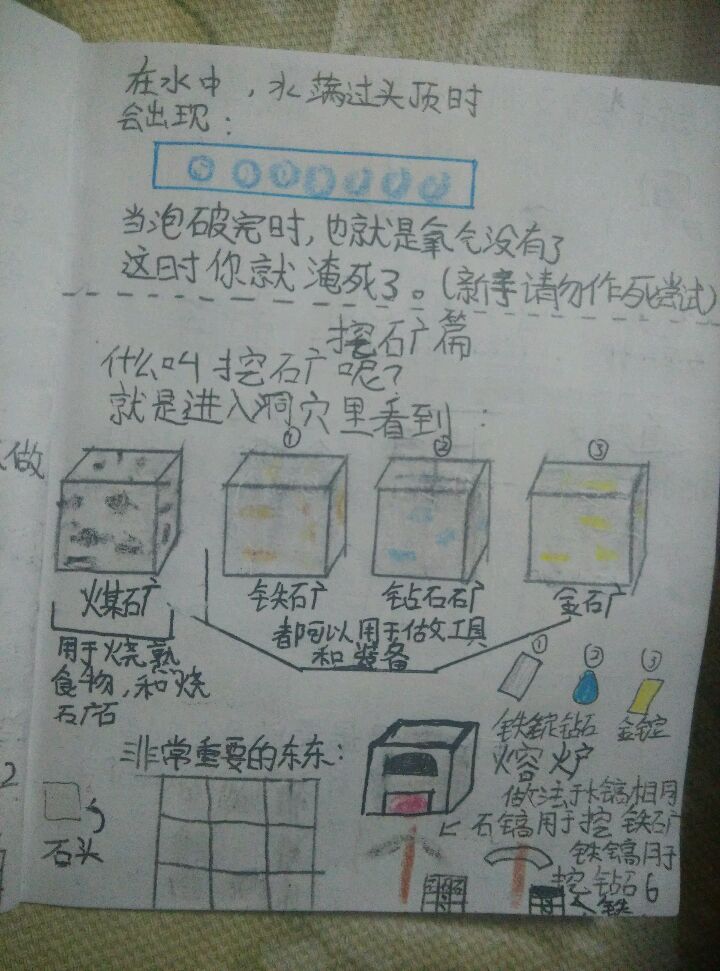 在水中，水满过头顶时
会出现：
当泡破完时，也就是氧气没有了
这时你就淹死了。(新手请勿作死尝试)
挖矿篇
什么叫挖矿呢？
就是进入洞穴里看到：
做
① ② ③
火煤矿 铁矿 钻石矿 金矿
都可以用于做工具
和装备
用于烧熟
食物，和烧
矿石
① ② ③
铁锭 钻石 金锭
非常重要的东东：
熔炉
做法于木镐相同
石镐用于挖铁矿
石头
铁镐用于
挖钻石
2
6
个铁